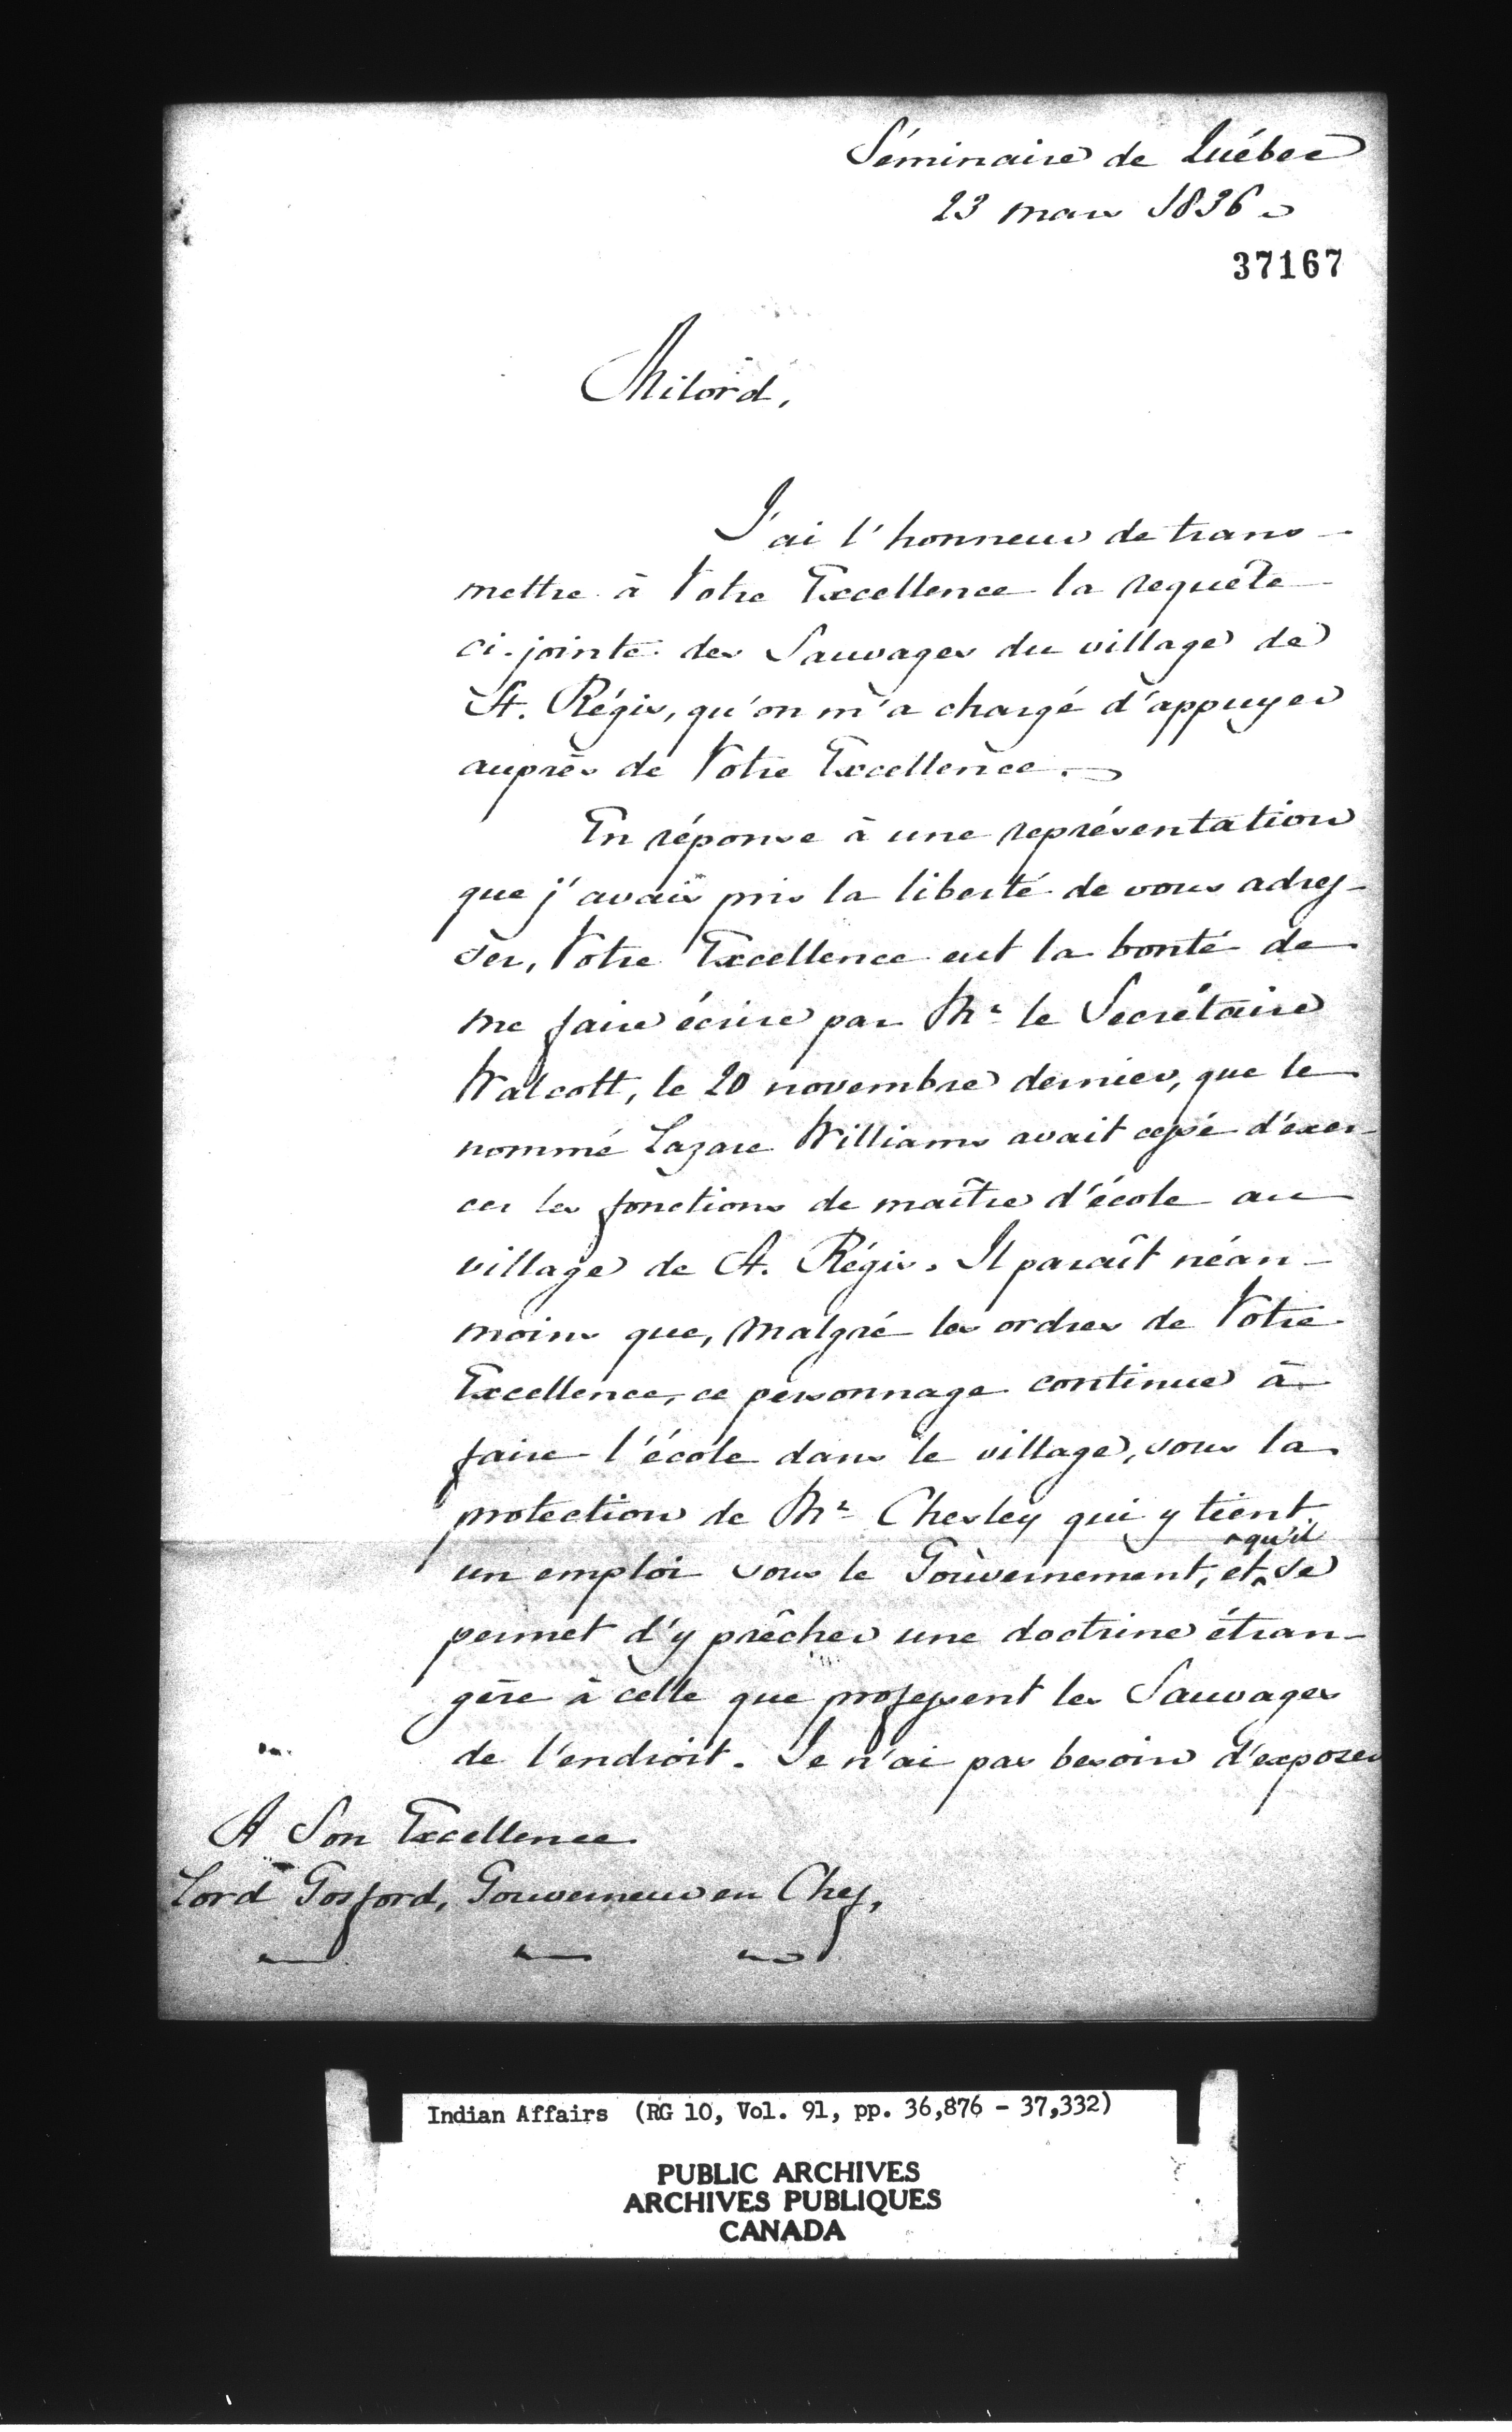 Séminaire de Québec
23 mars 1836
37167
Milord,
J'ai l'honneur de trans-
mettre à Votre Excellence la requête
ci-jointe des Sauvages du village de
St. Régis, qu'on m'a chargé d'appuyer
auprès de Votre Excellence.
En réponse à une représentation
que j'avais pris la liberté de vous adres-
ser, Votre Excellence eut la bonté de
me faire écrire par Mr. le Secrétaire
Walcott, le 20 novembre dernier, que le
nommé Lazare Williams avait cessé d'exer-
cer les fonctions de maître d'école au
village de St. Régis. Il paraît néan-
moins que, malgré les ordres de Votre
Excellence, ce personnage continue à
faire l'école dans le village, sous la
protection de Mr. Chesley qui y tient
un emploi sous le Gouvernement, et qu'il se
permet d'y prêcher une doctrine étran-
gère à celle que professent les Sauvages
de l'endroit. Je n'ai pas besoin d'exposer
A Son Excellence
Lord Gosford, Gouverneur en Chef,
Indian Affairs (RG 10, Vol. 91, pp. 36,876 - 37,332)
PUBLIC ARCHIVES
ARCHIVES PUBLIQUES
CANADA